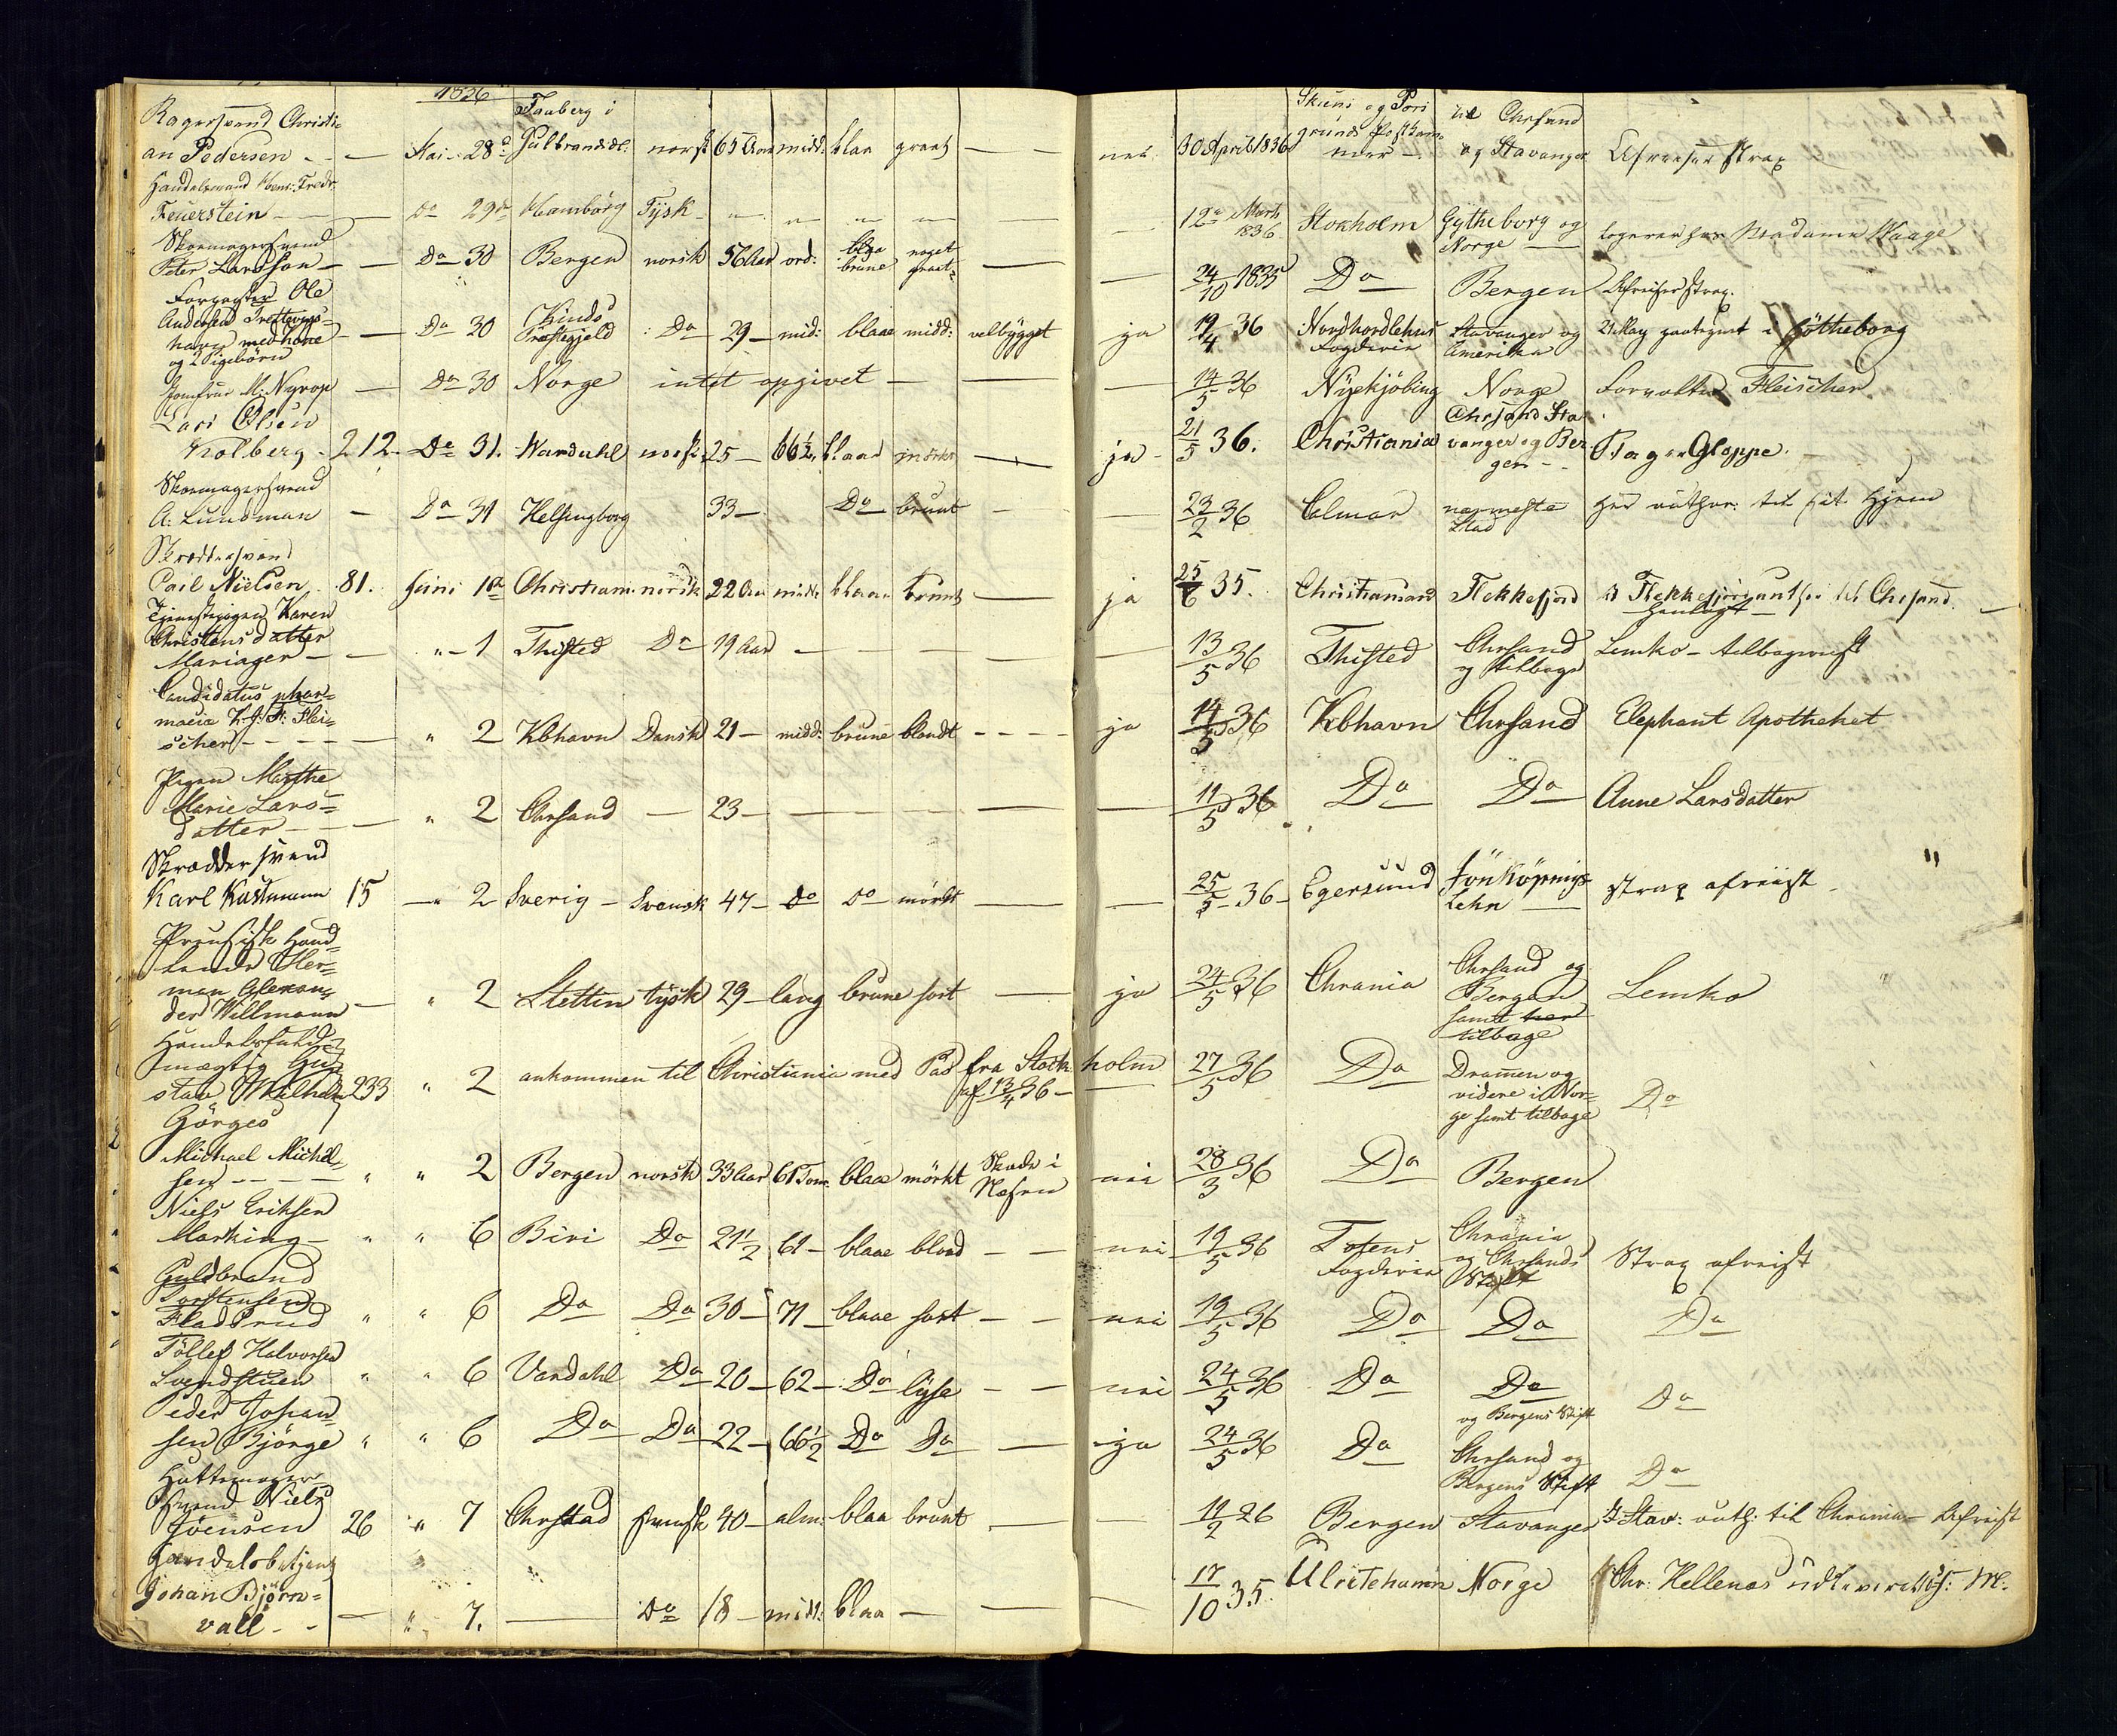 1836
Bagersvend Christi-
an Pedersen - - — Mai - 28de Faaberg i Gulbrandsdl: norsk 65 Aar midd: blaa graat — — nei 30 April 1836 Skiens og Pors grunds Postkam mer — til Chrsand og Stavanger Afreiser strax
Handelsmand Henr: Fredr:
Feuerstein — — Do 29de Hamborg Tysk - — — — — — — 12te Marts 1836 Stokholm Gøtheborg og Norge — logerer hos Madame Waage
Skomagersvend
Peter Larsson — — Do 30 Bergen norsk 56 Aar ord: blaa brune noget graat — — 24/10 1835 Do Bergen Afreiser strax.
Forgyller Ole
Andersen
med kone
og 2 Pigebørn — Do 30 Hinds Præstegjeld : Do 29 — mid: blaae midd: velbygget ja 19/4 36 Nordhordlehns Fogderie Stavanger og Amerika i Gøtheborg
Jomfrue M: Nyrop — Do 30 Norge intet opgivet — — — 14/5 36 Nyekjøbing Norge Forvalter Fleischer
Lars Olsen
Kolberg - 212 - Do 31. Wardahl norsk 25 — 66½ blaae mørkt — ja - 21/5 36. Christiania Chrsand Sta vanger og Ber gen - - Gloppe.
Skomagersvend
A: Lundman — Do 31 Helsingborg 33 — Do brunt — — 23/2 36 Calmar nærmeste Stad Her udthær: til sit Hjem
Skræddersvend
Carl Nielsen 81. Juni 1te Christiani: norsk 22 Aar midd: blaa brunt — ja 25/6 35. Christiansand Flekkefjord til Chrsand.
Tjenestepigen Karen
Christensdatter
Mariager — — " — 1 Thisted Do 19 Aar — — — — — 13/5 36 Thisted Chrsand og tilbage Lemko — tilbagereist
Candidatus phar-
macia H. J. F: Flei-
scher — — — — " 2 Kbhavn Dansk 21 — midd: brune blondt - - - - ja 14/5 36 Kbhavn Chrsand Elephant Apotheket
Pigen Marthe
Marie Lars-
datter - — — " 2 Chrsand — 23 — — — — — — 11/5 36 Do Do Anne Larsdatter
Skræddersvend
Karl Kastmann 15 — " 2 Sverig — Svensk 47 — Do Do mörkt — — 25/5 - 36 - Egersund Jönköpings Lehn — strax afreist "
Preusisk Hand-
lende Her-
man Alexan-
der Willmann — " 2 Stettin tysk 29 — lang brune sort — ja 24/5 36 Chrania Chrsand og Bergen samt her tilbage Lemko
Handelsfuld-
mægtig Gu-
stav Wilhelm 233 " 2 ankommen til Christiania med Pas fra Stock holm af 13/4 36 — — 27/5 36 Do Dramen og videre i Nor- ge samt tilbage Do
Görges
Michael Michel-
sen - - - — " " 2 Bergen norsk 33 Aar 61 Tom: blaae mörkt Skade i Næsen nei 28/3 36 Do Bergen
Niels Eriksen
Marking — " " 6 Biri Do 21½ 61 — blaae blond — — nei 19/5 36 Totens Fogderie Chrania og Chrsands Stift Strax afreist
Guldbrand
Torstensen
Fladsrud " " 6 Do Do 30 — 71 — blaae sort — — nei 19/5 36 Do Do Do
Tollef Halvorsen
Svendstuen " " 6 Vardahl Do 20 — 62 — Do lyse — — nei 24/5 36 Do Do og Bergens Stift Do
Peder Johan-
sen Bjørge " " 6 Do Do 22 — 66½ Do Do — ja 24/5 36 Do Chrsand og Bergens Stift Do
Hattemager-
svend Niels
Joensen 26 " 7 Chrstad svensk 40 — alm: blaa brunt — — 11/2 26 Bergen Stavanger I Stav: udth: til Chrania — Afreist
Handelsbetjent
Johan Björn-
vall - - — " 7. — Do 18 — midd: blaa — — — 17/10 35. Ulricehamn Norge Chr: Hellenas